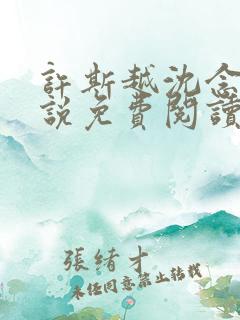 許斯越沈念
說免費閱讀
張緒才
未經同意禁止轉載